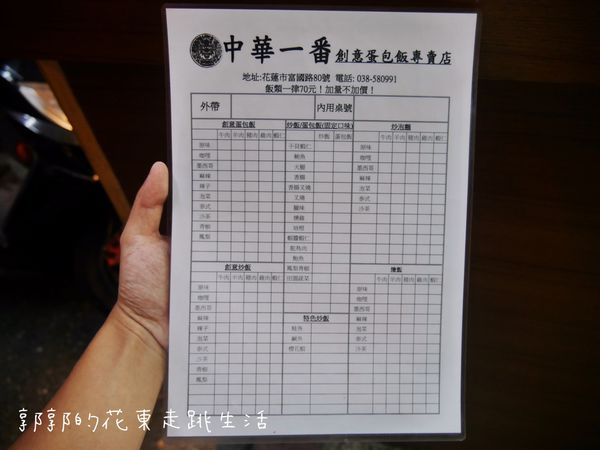 中華一番 創意蛋包飯專賣店
地址:花蓮市富國路80號 電話: 038-580991
飯類一律70元！加量不加價！
外帶 內用桌號
創意蛋包飯
牛肉 羊肉 豬肉 雞肉 蝦仁
原味
咖哩
墨西哥
麻辣
辣子
泡菜
泰式
沙茶
青椒
鳳梨
炒飯/蛋包飯(固定口味)
炒飯 蛋包飯
干貝蝦仁
鮪魚
火腿
香腸
香腸叉燒
叉燒
臘味
燒雞
培根
蝦醬蝦仁
鮑魚
鳳梨青椒
田園蔬菜
炒泡麵
牛肉 羊肉 豬肉 雞肉 蝦仁
原味
咖哩
墨西哥
麻辣
泡菜
泰式
沙茶
創意炒飯
牛肉 羊肉 豬肉 雞肉 蝦仁
原味
咖哩
墨西哥
麻辣
辣子
泡菜
泰式
沙茶
青椒
鳳梨
特色炒飯
鮭魚
鹹魚
櫻花蝦
燴飯
牛肉 羊肉 豬肉 雞肉 蝦仁
原味
咖哩
墨西哥
麻辣
泡菜
泰式
沙茶
郭郭的花東走跳生活